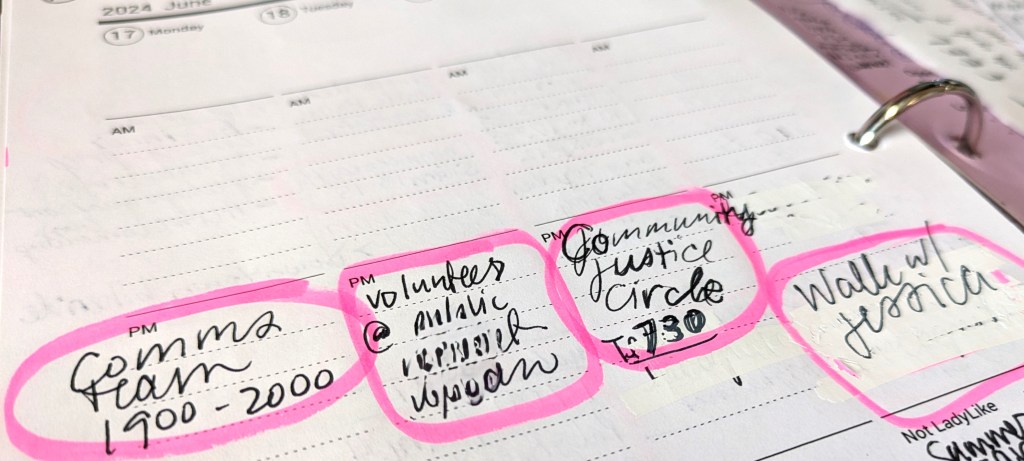 2024 June
17 Monday
18 Tuesday
AM
AM
AM
AM
PM
Comms
team
1900 - 2000
PM
Volunteer
@ public
PM
Community
Justice
Circle
730
PM
Walk w/
Jessica
Not LadyLike